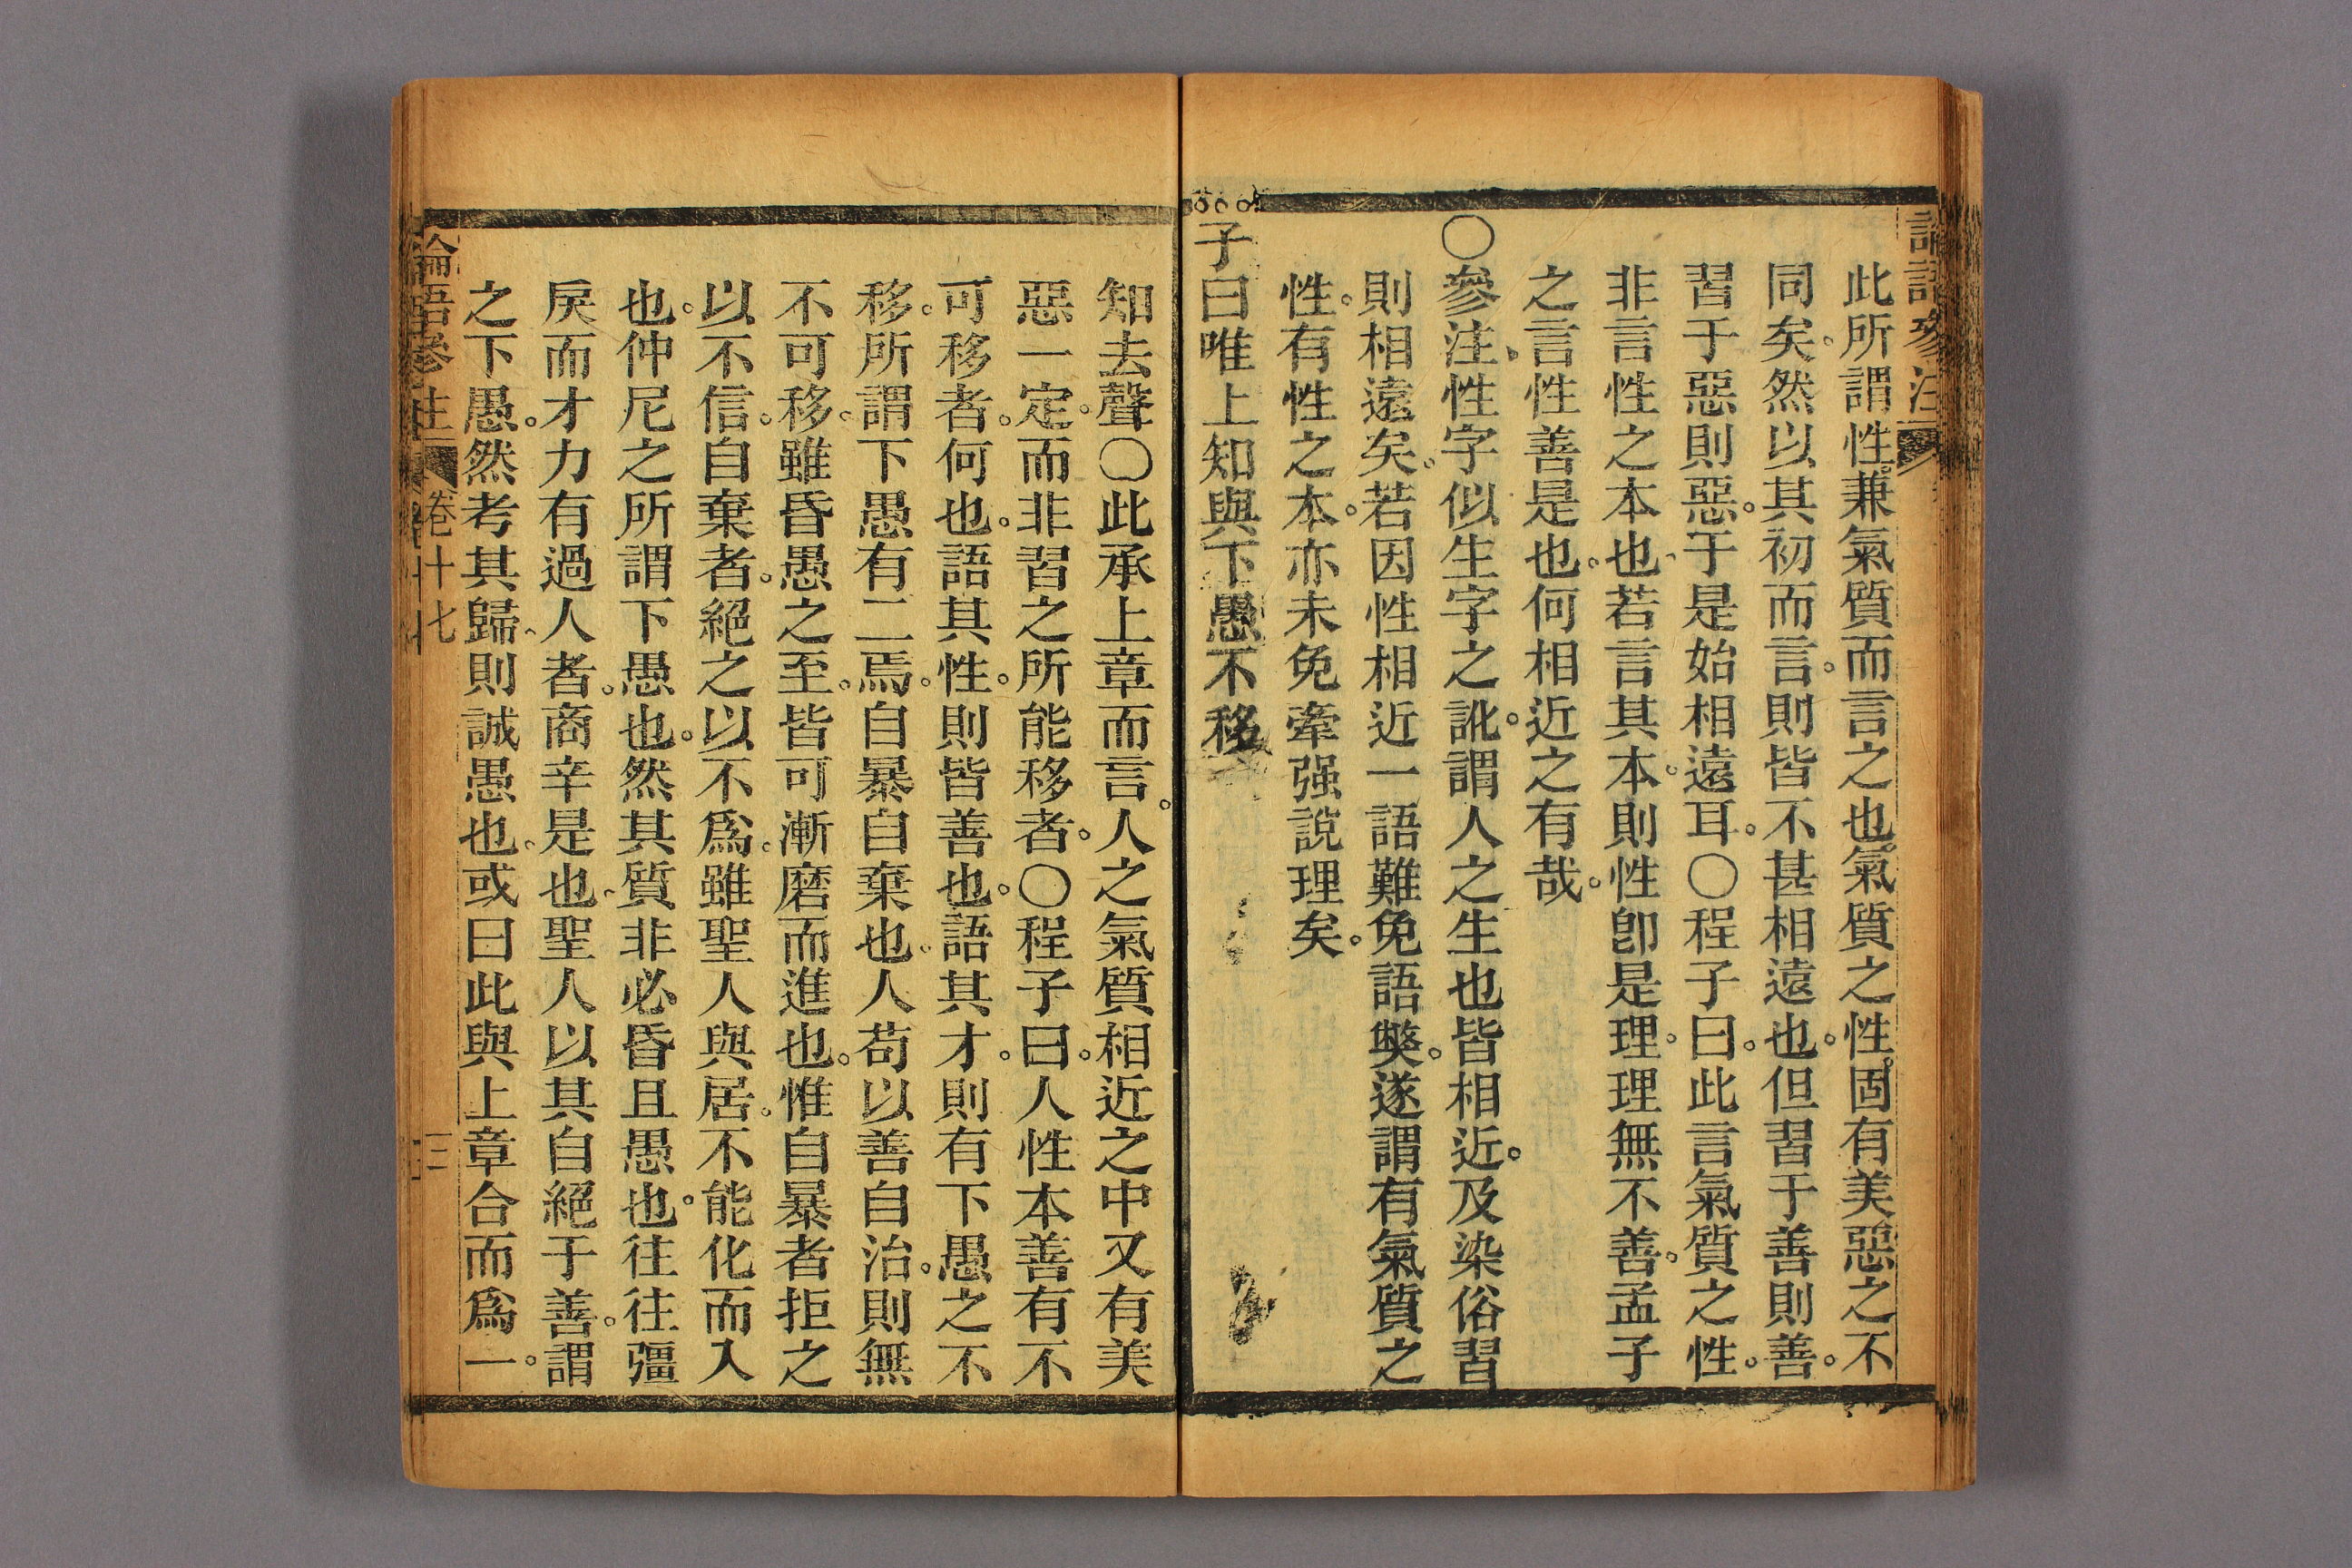 論語參注
此所謂性。兼氣質而言之也。氣質之性。固有美惡之不
同矣。然以其初而言。則皆不甚相遠也。但習于善則善。
習于惡則惡。于是始相遠耳。〇程子曰。此言氣質之性。
非言性之本也、若言其本。則性卽是理。理無不善。孟子
之言性善是也。何相近之有哉。
〇參注。性字似生字之訛。謂人之生也皆相近。及染俗習
則相遠矣。若因性相近一語難免語獘。遂謂有氣質之
性。有性之本。亦未免牽强說理矣。
子曰唯上知與下愚不移
知去聲〇此承上章而言。人之氣質相近之中又有美
惡一定。而非習之所能移者。〇程子曰。人性本善有不
可移者。何也。語其性。則皆善也。語其才。則有下愚之不
移。所謂下愚有二焉。自暴自棄也。人苟以善自治。則無
不可移。雖昏愚之至。皆可漸磨而進也。惟自暴者拒之
以不信。自棄者。絕之以不爲。雖聖人與居。不能化而入
也。仲尼之所謂下愚也。然其質非必昏且愚也。往往彊
戾而才力有過人者。商辛是也、聖人以其自絕于善。謂
之下愚。然考其歸、則誠愚也。或曰此與上章合而爲一。
論語參注
卷十七
三